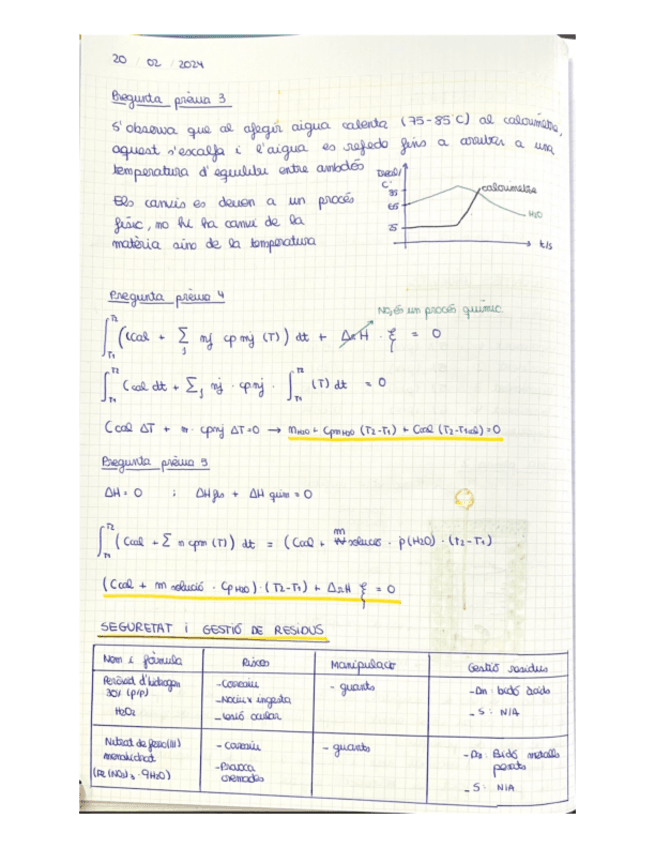 20 / 02 / 2024
Pregunta prèvia 3
S'observa que al afegir aigua calenta (75-85°C) al calorímetre,
aquest s'escalfa i l'aigua es refreda fins a arribar a una
temperatura d'equilibri entre ambdós
Els canvis es deuen a un procés
físic, no hi ha canvi de la
matèria sino de la temperatura
C°
85
65
25
calorímetre
H2O
t/s
Pregunta prèvia 4
No, és un procés químic
∫T1T2 (Ccal + Σj nj cp mj (T)) dt + ΔrH · ξ = 0
∫T1T2 Ccal dt + Σj nj · cpmj · ∫T1T2 (T) dt = 0
Ccal ΔT + n · cpmj ΔT = 0 → mH2O + CpmH2O (T2-T1) + Ccal (T2-T1cal) = 0
Pregunta prèvia 5
ΔH = 0 ; ΔH fis + ΔH quim = 0
∫T1T2 (Ccal + Σ n cpm (T)) dt = (Ccal + m solució · p(H2O) · (T2-T1)
(Ccal + m solució · Cp H2O) · (T2-T1) + ΔrH ξ = 0
SEGURETAT i GESTIÓ DE RESIDUS
Nom i fórmula Riscos Manipulació Gestió residus
Peròxid d'hidrogen
30% (p/p)
H2O2
- Corrosiu
- Nociu x ingesta
- Lesió ocular
- guants
- Dn: bidó àcids
- S: N/A
Nitrat de ferro(III)
monohidrat
(Fe(NO3)3 · 9H2O)
- Corrosiu
- Provoca
cremades
- guants
- Bidó metalls
pesats
- S: N/A